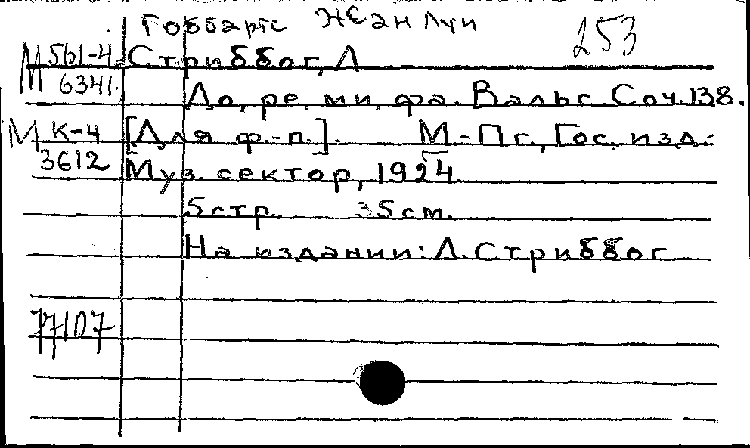 Гоббартс Жан Луи
253
М 561-4 Стриббог, Л
6341.
До, ре, ми, фа. Вальс. Соч. 138.
М К-4 [Для ф.-п.]. М.-Пг., Гос. изд.:
3612 Муз. сектор, 1924.
5 стр. 35 см.
На издании: Л. Стриббог
77107